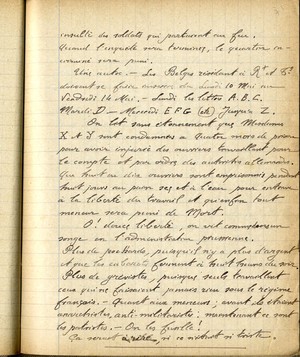 insulté des soldats qui partaient au feu.
Quand l'enquête sera terminée, le quartier in-
criminé sera puni.
Un autre. – Les Belges résidant à R. et T.
doivent se faire du 10 Mai au
Vendredi 14 Mai. – Lundi les lettres A.B.C.
Mardi D – Mercredi E F G (etc) jusque Z.
On lit sans étonnement que Madame
X et Y sont condamnées à quatre mois de prison
pour avoir injurié des ouvriers travaillant pour
le compte et par ordre des autorités allemandes.
Que huit ou dix ouvriers sont emprisonnés pendant
huit jours au pain sec et à l'eau pour entrave
à la liberté du travail et qu'enfin tout
meneur sera puni de Mort.
O! douce liberté, on voit
l'administration prussienne.
Plus de, puisqu'il n'y a plus d'argent
et que les cabarets ferment à huit heures du soir.
Plus de grévistes, puisque seuls travaillent
ceux qui ne faisaient jamais rien sous le régime
français. – Quant aux meneurs; avant ils étaient
anarchistes, anti-militaristes; maintenant ce sont
les patriotes. – On les fusille!
Ça serait à rire, si ce n'était si triste.